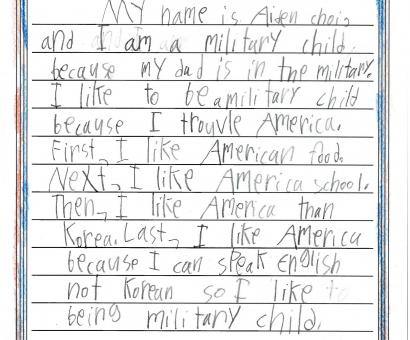 My name is Aiden choi,
and I am a military child.
because my dad is in the military.
I like to be a military child
because I trouvle America.
First, I like American food.
Next, I like America school.
Then, I like America than
Korea. Last, I like America
because I can speak english
not Korean so I like to
being military child.